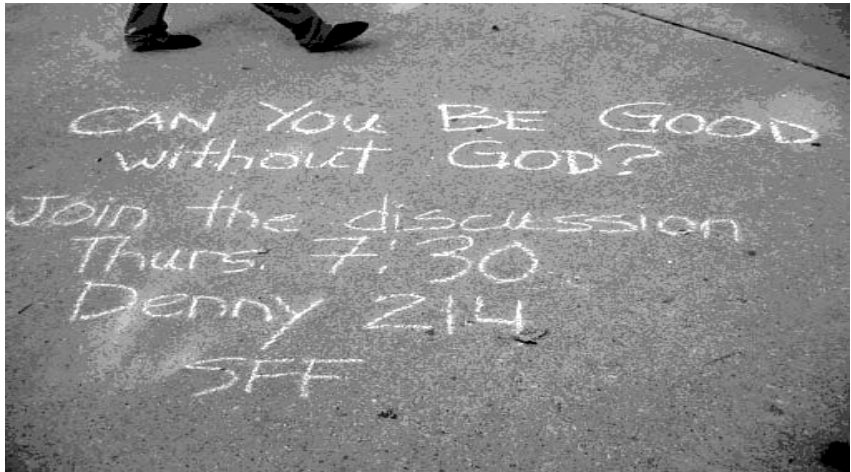 CAN YOU BE GOOD
without GOD?
Join the discussion
Thurs. 7:30
Denny 214
SFF